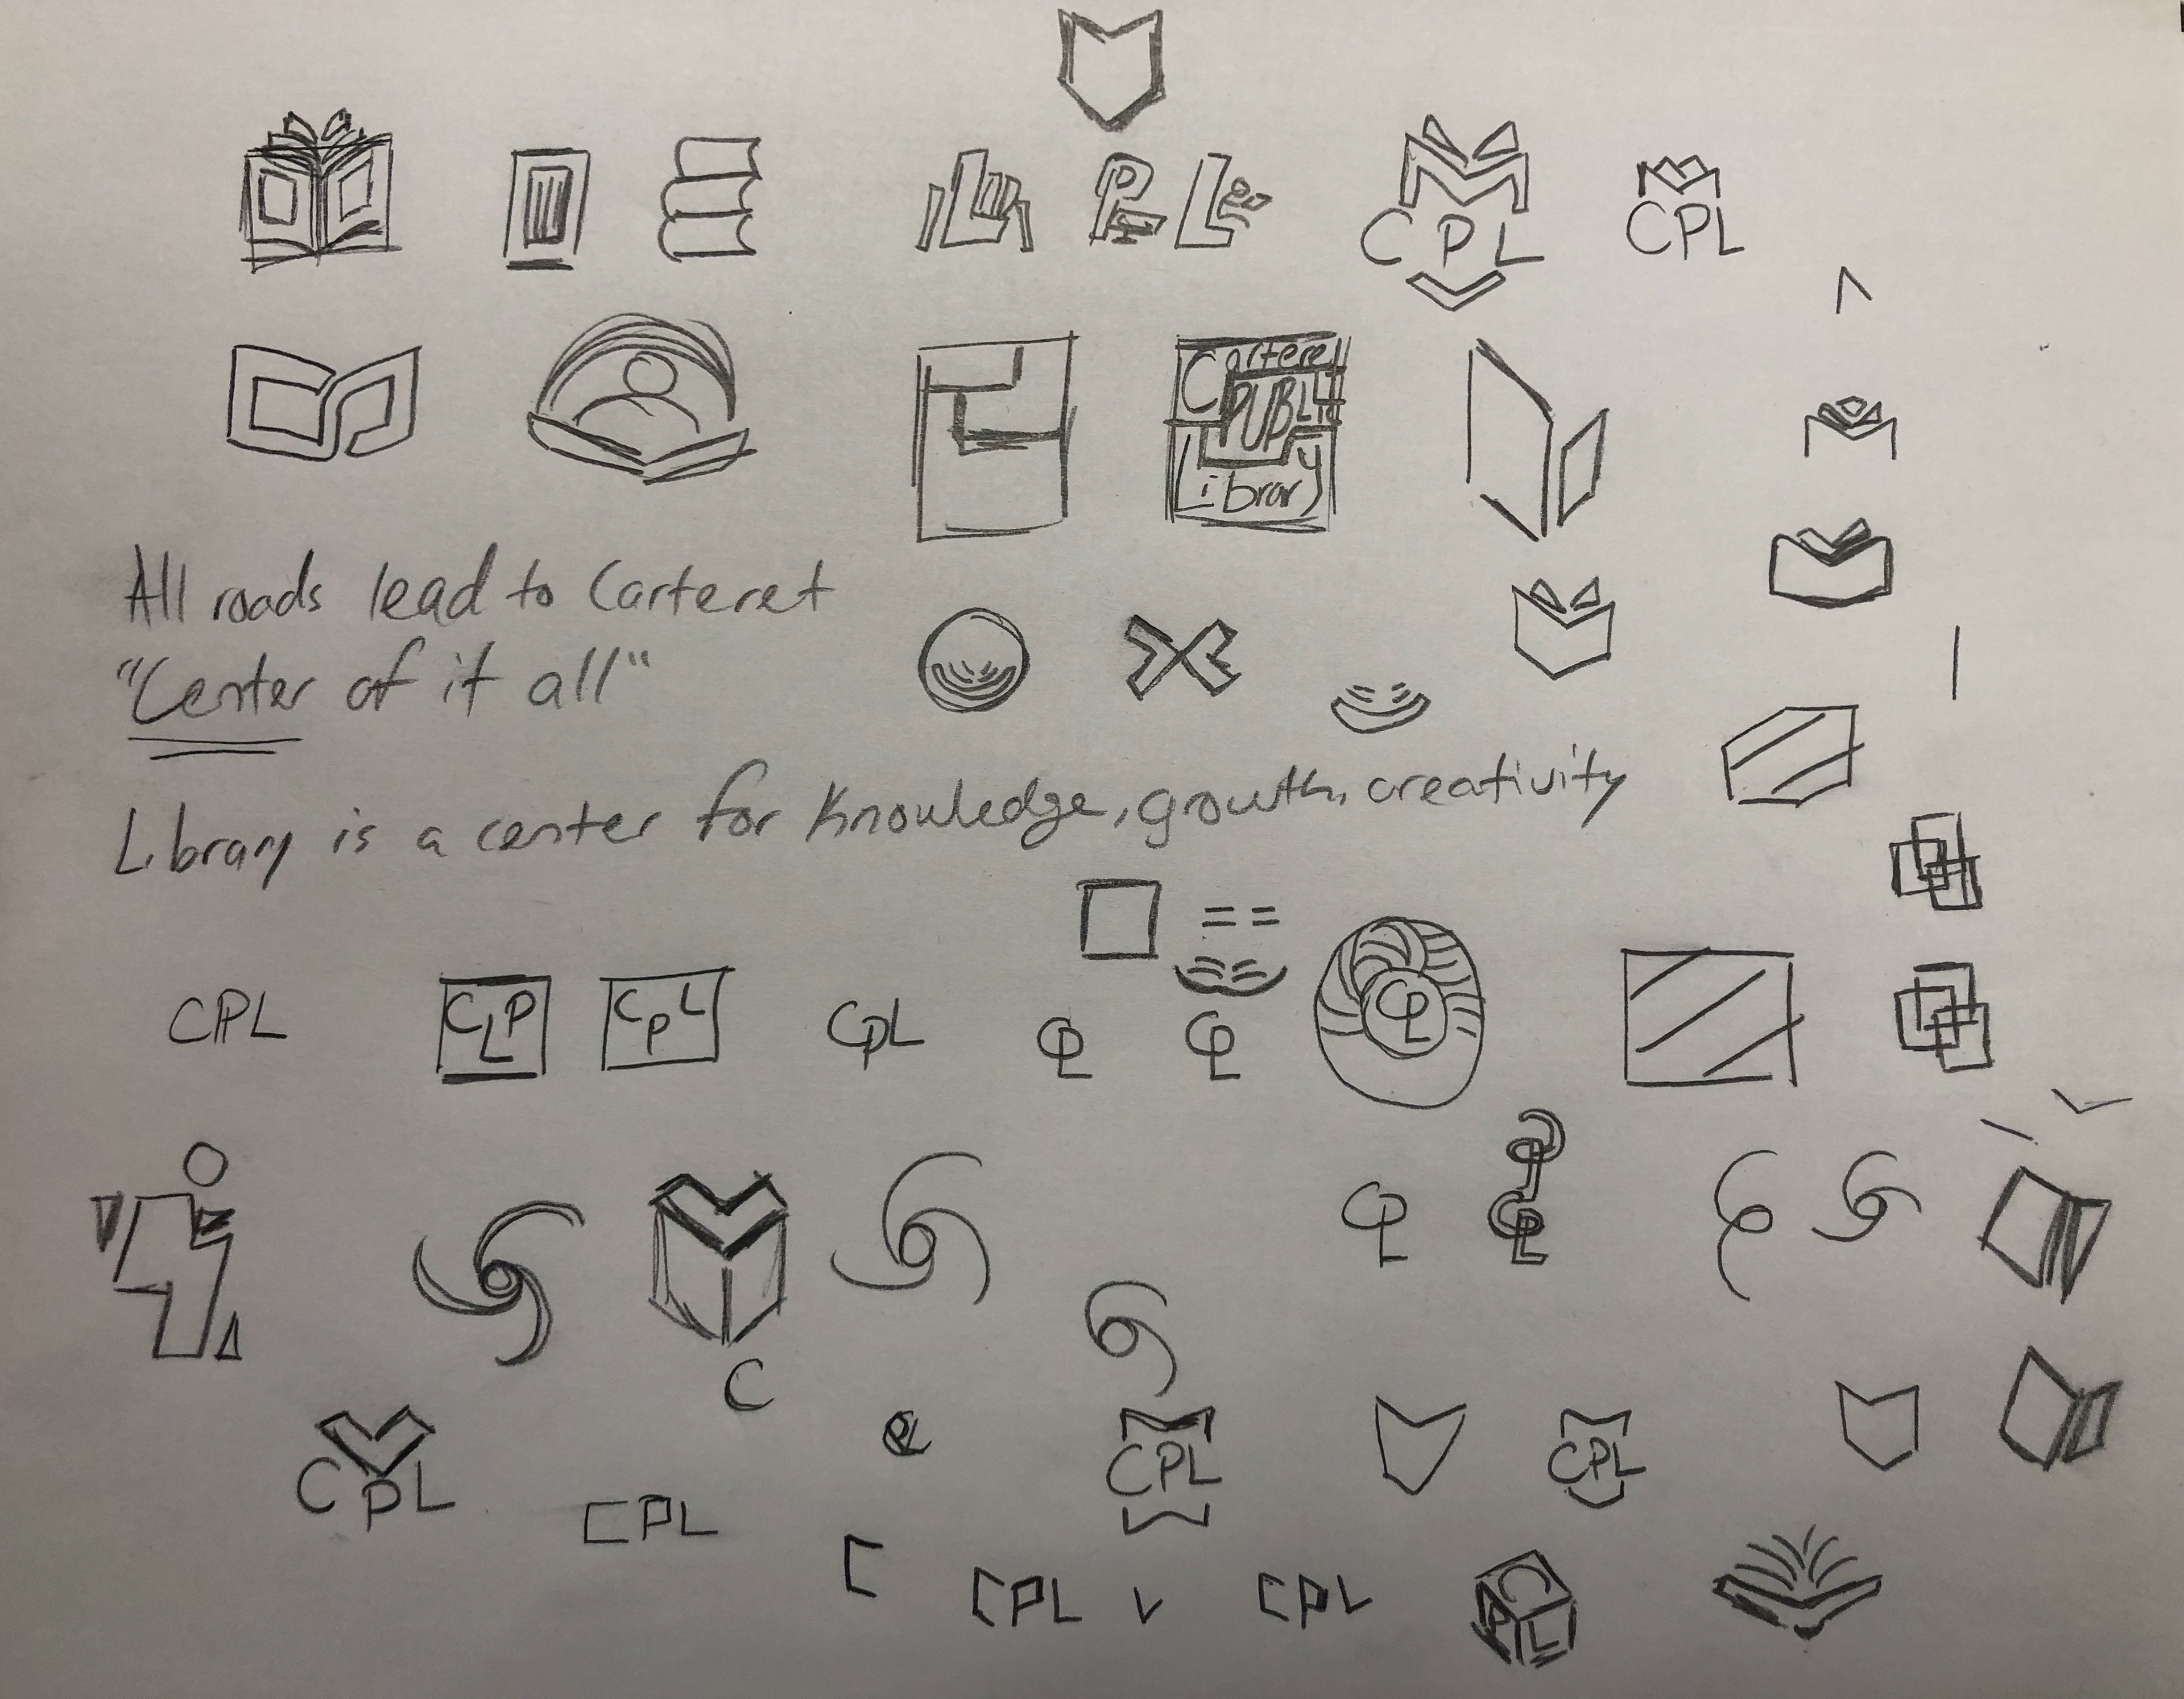 CPL
CPL
Carteret
PUBLIC
Library
All roads lead to Carteret
"Center of it all"
Library is a center for knowledge, growth, creativity
CPL
CLP
CPL
CPL
CPL
CPL
CPL
CPL
CPL
C
CPL
CPL
CPL
CPL
C
CPL
CPL
CPL